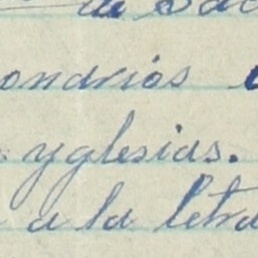 de Sac
ondrios
yglesias.
a la letra